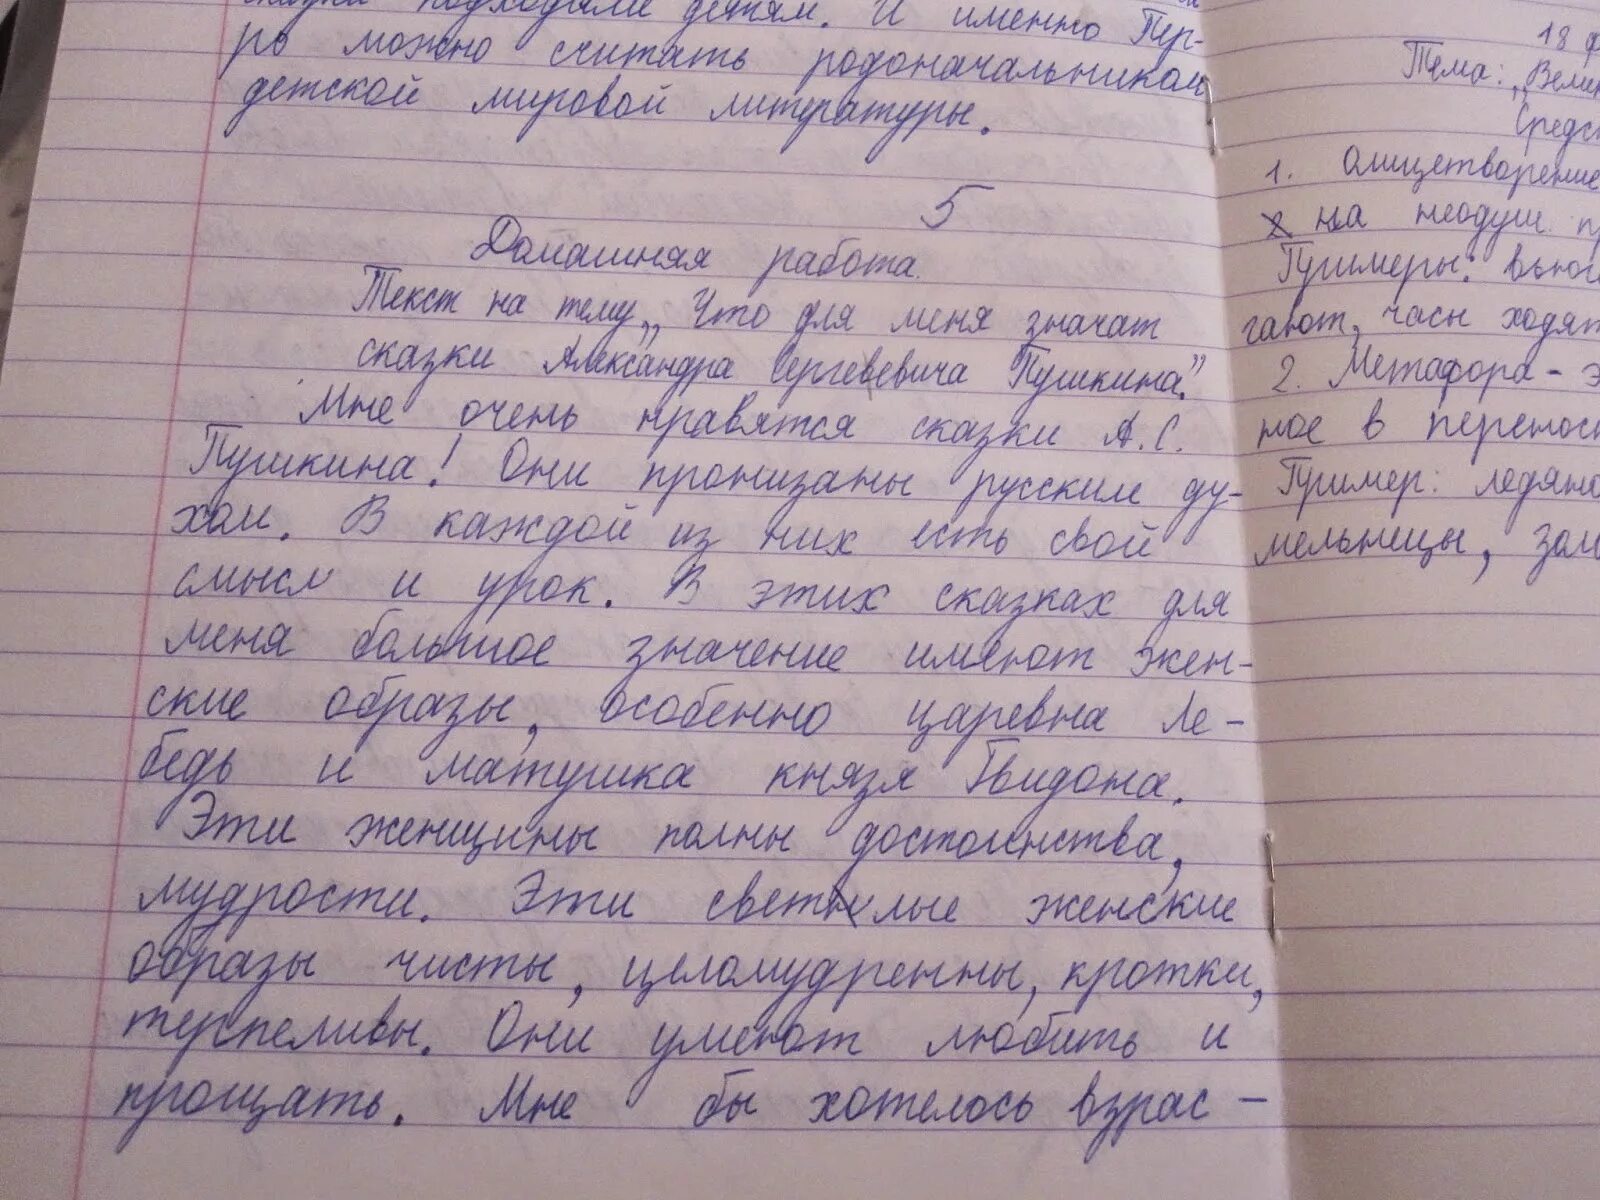 сказки подходили детям. И именно Пер-
ро можно считать родоначальником
детской мировой литературы.
5
Домашняя работа.
Текст на тему „Что для меня значат
сказки Александра Сергеевича Пушкина."
Мне очень нравятся сказки А.С.
Пушкина! Они пронизаны русским ду-
хом. В каждой из них есть свой
смысл и урок. В этих сказках для
меня большое значение имеют жен-
ские образы, особенно царевна Ле-
бедь и матушка князя Гвидона.
Эти женщины полны достоинства,
мудрости. Эти светлые женские
образы чисты, целомудренны, кротки,
терпеливы. Они умеют любить и
прощать. Мне бы хотелось взрас-
18 ф
Тема: „Вели
Средс
1. Олицетворение
на неодуш. п
Примеры: вьюг
гают, часы ходят
2. Метафора - э
ное в перенос
Пример: ледяно
мельницы, зам